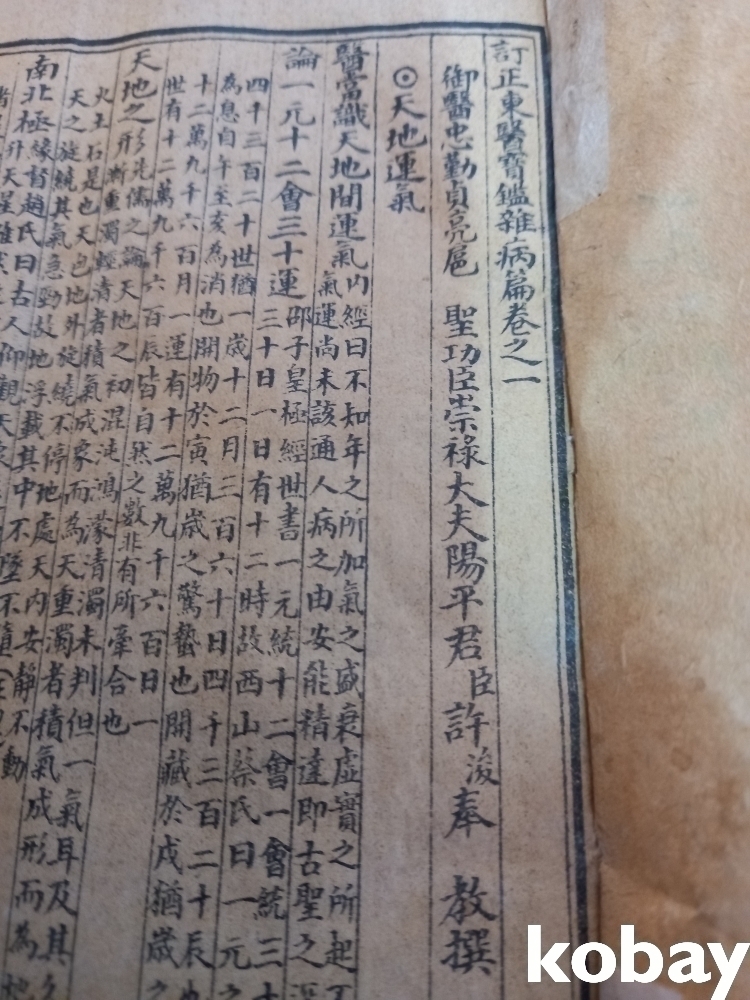 訂正東醫寶鑑雜病篇卷之一
御醫忠勤貞亮扈 聖功臣崇祿大夫陽平君臣許浚奉 教撰
⊙天地運氣
醫當識天地間運氣
內經曰不知年之所加氣之盛衰虛實之所起不
氣運尚未該通人病之由安能精達即古聖之
論一元十二會三十運
邵子皇極經世書一元統十二會一會統三十
三十日一日有十二時故西山蔡氏曰一元之
四千三百二十世猶一歲十二月三百六十日四千三百二十辰也
為息自午至亥為消也開物於寅猶歲之驚蟄也開藏於戌猶歲之
十二萬九千六百月一運有十二萬九千六百日一
世有十二萬九千六百辰皆自然之數非有所牽合也
天地之形
先儒之論天地之初混沌鴻濛清濁未判但一氣耳及其久
漸重濁輕清者積氣成象而為天重濁者積氣成形而為地
火土石是也天包地外旋繞不停地處天內安靜不動
天之旋繞其氣急勁故地浮載其中不墜不隨
南北極
緣督趙氏曰古人仰觀天
kobay